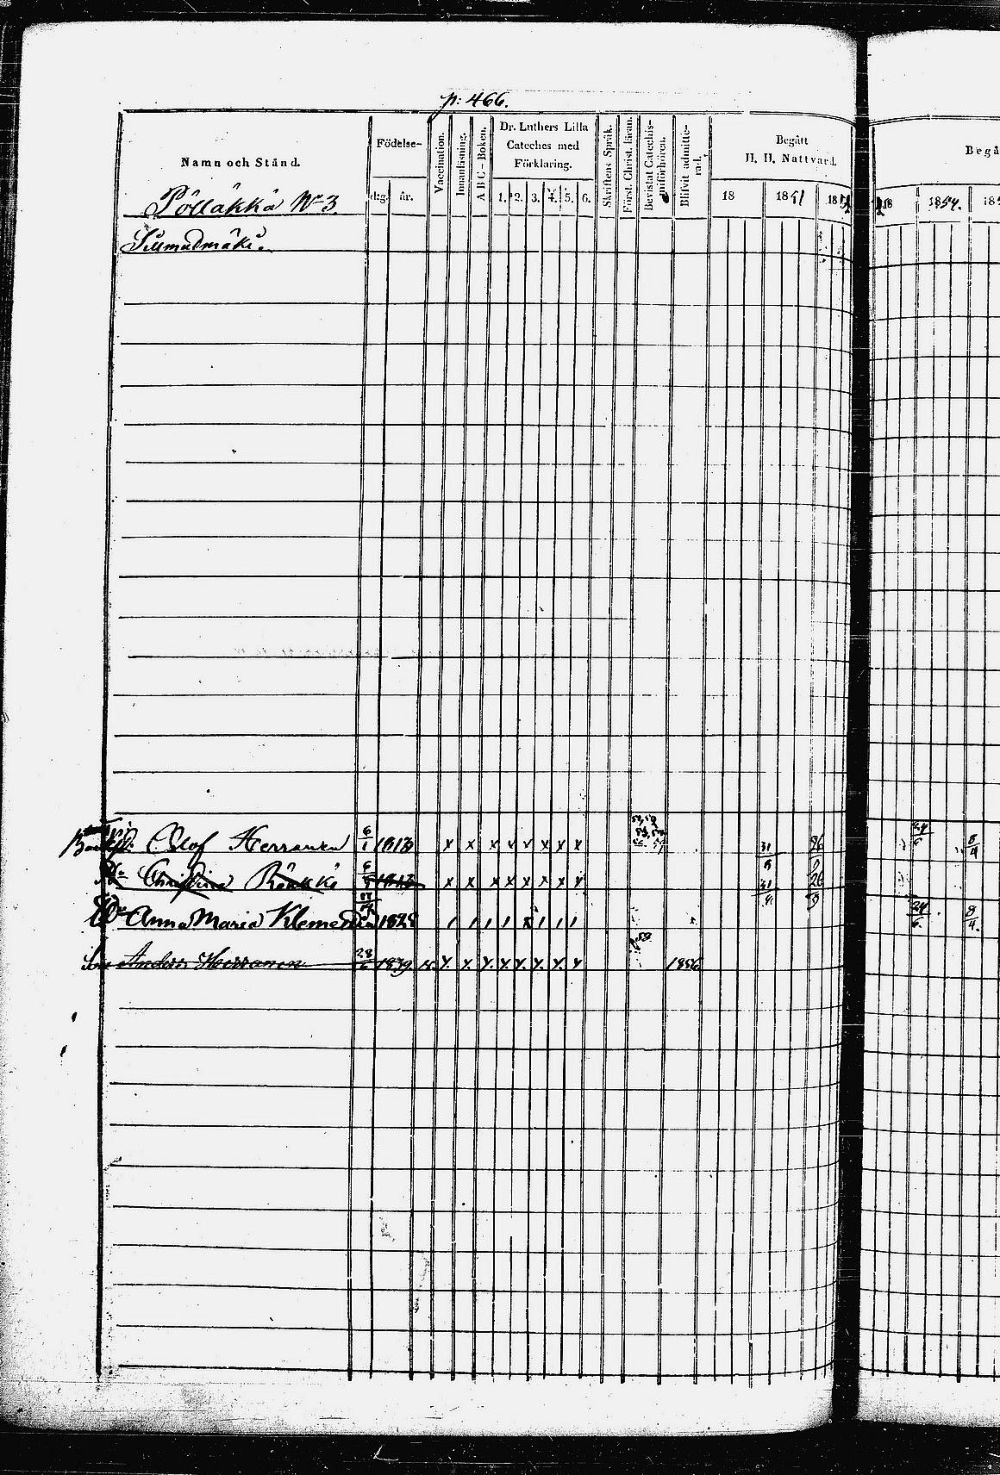 p: 466.
Namn och Stånd.
Födelse-
dg. år.
Vaccination.
Innanläsning.
A B C - Boken.
Dr. Luthers Lilla
Cateches med
Förklaring.
1. 2. 3. 4. 5. 6.
Skriftens Språk.
Först. Christ. läran.
Bevistat Catechis-
miförhören.
Blifvit admitte-
rad.
Begått
H. H. Nattvard.
18 1851 18
18 1854. 18
Begå
Pölläkkä N 3.
Olof Herranen 6/1 1813 x x x x x x x x 31/8 24/6 8/4
Christina 1813 x x x x x x x x
Anna Maria 1828 24/6. 8/4.
Anders Herranen 1839 x. x. x. x. x. x. x. x 59 1856